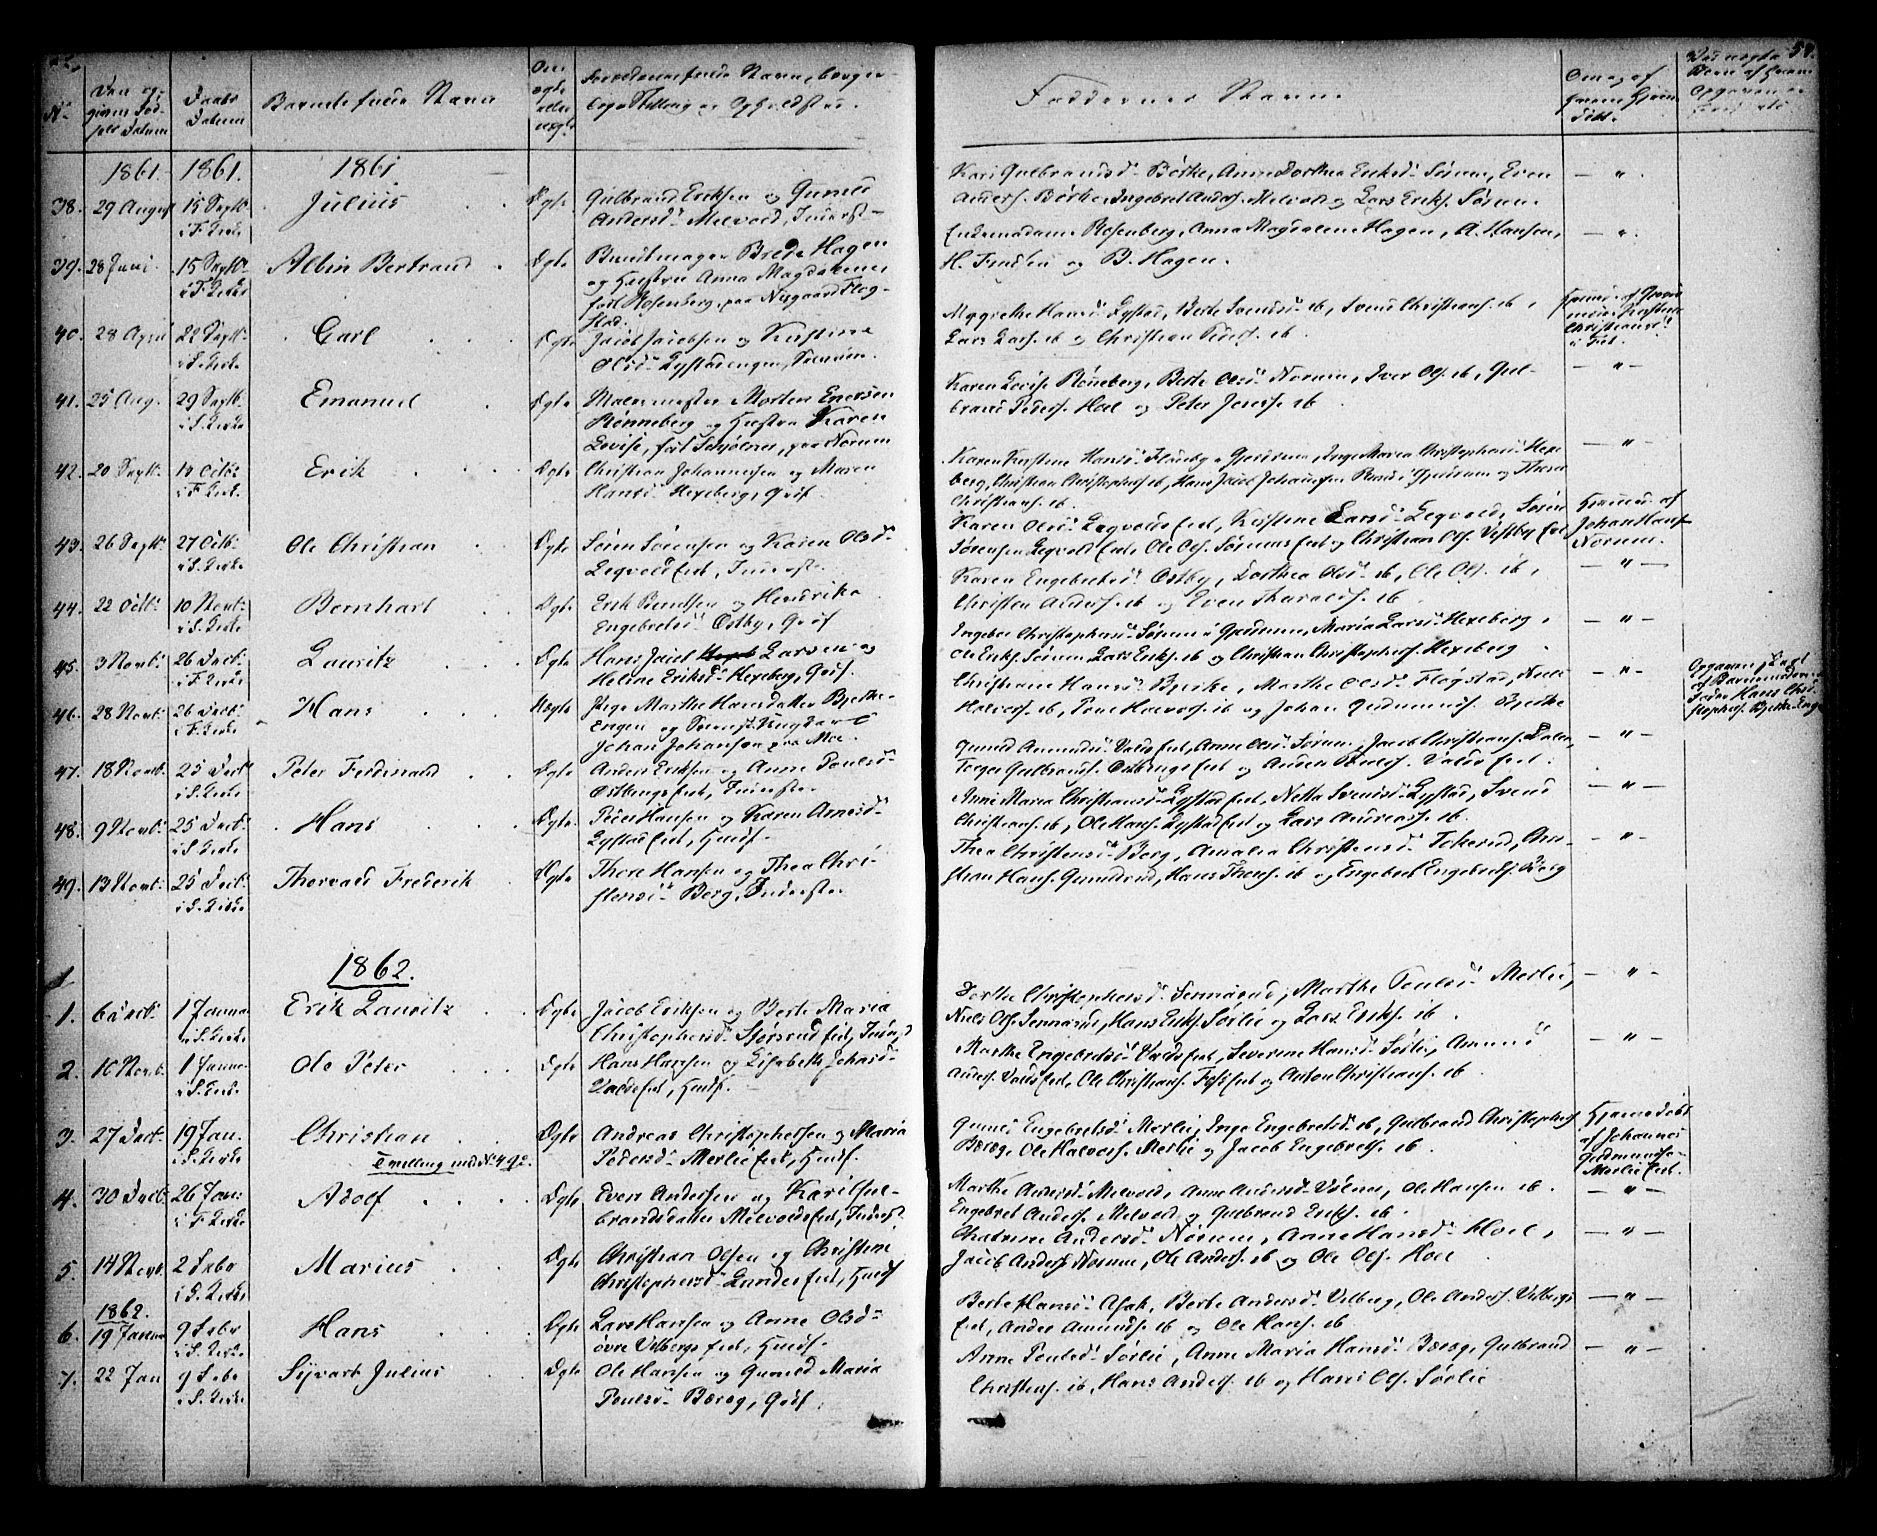 54.
No
Den op-
given Fød-
sels Datum
Daabs
Datum
Barnets fulde Navn
Om
ægte
eller
uægte
Forældrenes fulde Navn, borger-
lige Stilling og Opholdssted.
Faddernes Navne.
Om og af
hvem Hjem-
døbt.
Ved uægte
Børn af hvem
Opgaven er
1861. 1861. 1861
38. 29 August 15 Septb. i F. Kirke Julius Ægte Gulbrand Eriksen og Gunild
Andersd. Melvold, Inderst
Kari Gulbrandsd. Børke, Anne Dorthea Eriksd. Sørum, Even
Anders. Børke, Ingebret Anders. Melvold og Lars Eriks. Sørum. — " —
39. 28 Juni. 15 Septb. i F. Kirke Albin Bertrand Ægte Buntmager Brede Hagen
og Hustru Anna Magdalena
født Rosenberg, paa Nisgaard Flog-
stad.
Enkemadame Rosenberg, Anna Magdalena Hagen, A. Hansen,
H. Knudsen og B. Hagen. — " —
40. 28 April 22 Septb. i S. Kirke Carl Ægte Jacob Jacobsen og Kirstine
Olsd. Lystadengen,
Margrethe Hansd. Lystad, Berte Svendsd. ib, Svend Christians. ib,
Lars Lars. ib og Christian Peders. ib.
Hjemd. af
Kirstine
Christiansd.
i Fet.
41. 25 Aug. 29 Septb. i S. Kirke Emanuel Ægte Malermester Morten Enersen
Rønneberg og Hustru Karen
Lovise, født Schjølner, paa Norum
Karen Lovise Rønneberg, Berte Olsd. Norum, Iver Ols. ib, Gul-
brand Peders. Hoel og Peter Jens. ib. — " —
42. 20 Septb. 14 Octb. i F. Kirke Erik Ægte Christian Johannesen og Maren
Hansd. Hexeberg, Grdf.
Karen Kirstine Hansd. Flauby i Gjerdrum, Inge Maria Christophersd. Hexe-
berg, Christian Christophers. ib, Hans Jacob Johannesen i Gjerdrum og
Christians. ib. — " —
43. 26 Septb. 27 Octb. i S. Kirke Ole Christian Ægte Søren Sørensen og Karen Olsd.
Legvold Eiet, Inderste.
Karen Olsd. Legvolds Eiet, Kirstine Larsd. Legvold, Søren
Sørensen Legvold Eiet, Ole Ols. Sørums Eiet og Christian Ols. Vestby Eiet
Hjemd. af
Johan Hans.
Norum.
44. 22 Octb. 10 Novb. i S. Kirke Bernhart Ægte Erik Berntsen og Hendrika
Engebretsd. Østby, Grdf
Karen Engebretsd. Østby, Dorthea Olsd. ib, Ole Ols. ib,
Christen Anders. ib og Even Thorvalds. ib. — " —
45. 3 Novb. 26 Decb. i F. Kirke Lauritz Ægte Hans Jacob Larsen og
Helene Eriksd. Hexeberg, Grdf.
Ingebor Christophersd. Sørum i Gjerdrum, Maria Larsd. Hexeberg,
Ole Eriks. Sørum, Lars Eriks. ib og Christian Christophers. Hexeberg — " —
46. 28 Novb. 26 Decb. i F. Kirke Hans Uægte Pige Marthe Hansdatter Bjerke-
Engen og Ungkarl
Johan Johansen paa Moe.
Christiane Hansd. Bjerke, Marthe Olsd. Flogstad, Niels
Halvors. ib, Halvors. ib og Johan Gudmunds. Bjerke — " —
Opgaven skeet
af Barnemoderens
Fader Hans Chri-
stophers. Bjerke-Enge
47. 18 Novb. 25 Decb. i S. Kirke Peter Ferdinand Ægte Anders Eriksen og Anne Poulsd.
Østlings Eiet, Inderste.
Gunild Amundsd. Valds Eiet, Anne Olsd. Sørum, Jacob Christians. Dalen,
Torger Gulbrands. Østlings Eiet og Anders Poulss. Valds Eiet. — " —
48. 9 Novb. 25 Decb. i S. Kirke Hans Ægte Peder Hansen og Karen Arnesd.
Lystad Eiet, Husf.
Anne Maria Christiansd. Lystad Eiet, Netta Svendsd. Lystad, Svend
Christians. ib, Ole Hans. Lystad Eiet og Lars Andreas. ib. — " —
49. 13 Novb. 25 Decb. i S. Kirke Thorvald Frederik Ægte Thore Hansen og Thea Chri-
stensd. Berg, Inderster
Thea Christensd. Berg, Amalia Christensd. Tokerud, Chri-
stian Hans. Gunildrud, Hans Thores. ib og Engebret Engebrets. Berg — " —
1862.
1. 6 Decb. 1 Januar i S. Kirke Erik Lauritz Ægte Jacob Eriksen og Berte Maria
Christophersd. Størsrud Eiet, Inderst
Dorthe Christophersd. Jennsrud, Marthe Poulsd. Merlie,
Niels Ols. Jennsrud, Hans Eriks. Sørlie og Lars Eriks. ib. — " —
2. 10 Novb. 1 Januar i S. Kirke Ole Peter Ægte Hans Hansen og Elisabeth Johansd.
Valds Eiet, Husf.
Marthe Engebretsd. Valds Eiet, Severine Hansd. Sørlie, Amund
Anders. Valds Eiet, Ole Christians. Eiet og Anton Christians. ib. — " —
3. 27 Decb. 19 Jan. i S. Kirke Christian
Tvilling med No 49 d.
Ægte Andreas Christophersen og Maria
Pedersd. Merlie Eiet, Husf.
Gunild Engebretsd. Merlie, Inge Engebretsd. ib, Gulbrand Christophers.
Børog, Ole Halvors. Merlie og Jacob Engebrets. ib.
Hjemmedøbt
af Johannes
Gudmunds.
Merlie Eiet.
4. 30 Decb. 26 Jan. i F. Kirke Adolf Ægte Evert Andersen og Kari Gul-
brandsdatter Melvolds Eiet, Inderst
Marthe Andersd. Melvold, Anne Andersd. Vølner, Ole Hansen ib.
Engebret Anders. Melvold og Gulbrand Eriks. ib. — " —
5. 14 Novb. 2 Febr i S. Kirke Marius Ægte Christian Olsen og Christine
Christophersd. Lundes Eiet, Husf
Chatrine Andersd. Norum, Anne Hansd. Hoel,
Jacob Anders. Norum, Ole Anders. ib og Ole Ols. Hoel — " —
1862.
6. 19 Januar 9 Febr i S. Kirke Hans Ægte Lars Hansen og Anne Olsd.
øvre Vilbergs Eiet, Husf.
Berte Hansd. Asak, Berte Andersd. Vilberg, Ole Anders. Vilbergs
Eiet, Anders Amunds. ib og Ole Hans. ib — " —
7. 22 Jan 9 Febr i S. Kirke Syvart Julius Ægte Ole Hansen og Gunild Maria
Poulsd. Børog, Grdf.
Anne Poulsd. Sørlie, Anne Maria Hansd. Børog, Gulbrand
Christens. ib, Hans Anders. ib og Hans Ols. Sørlie — " —